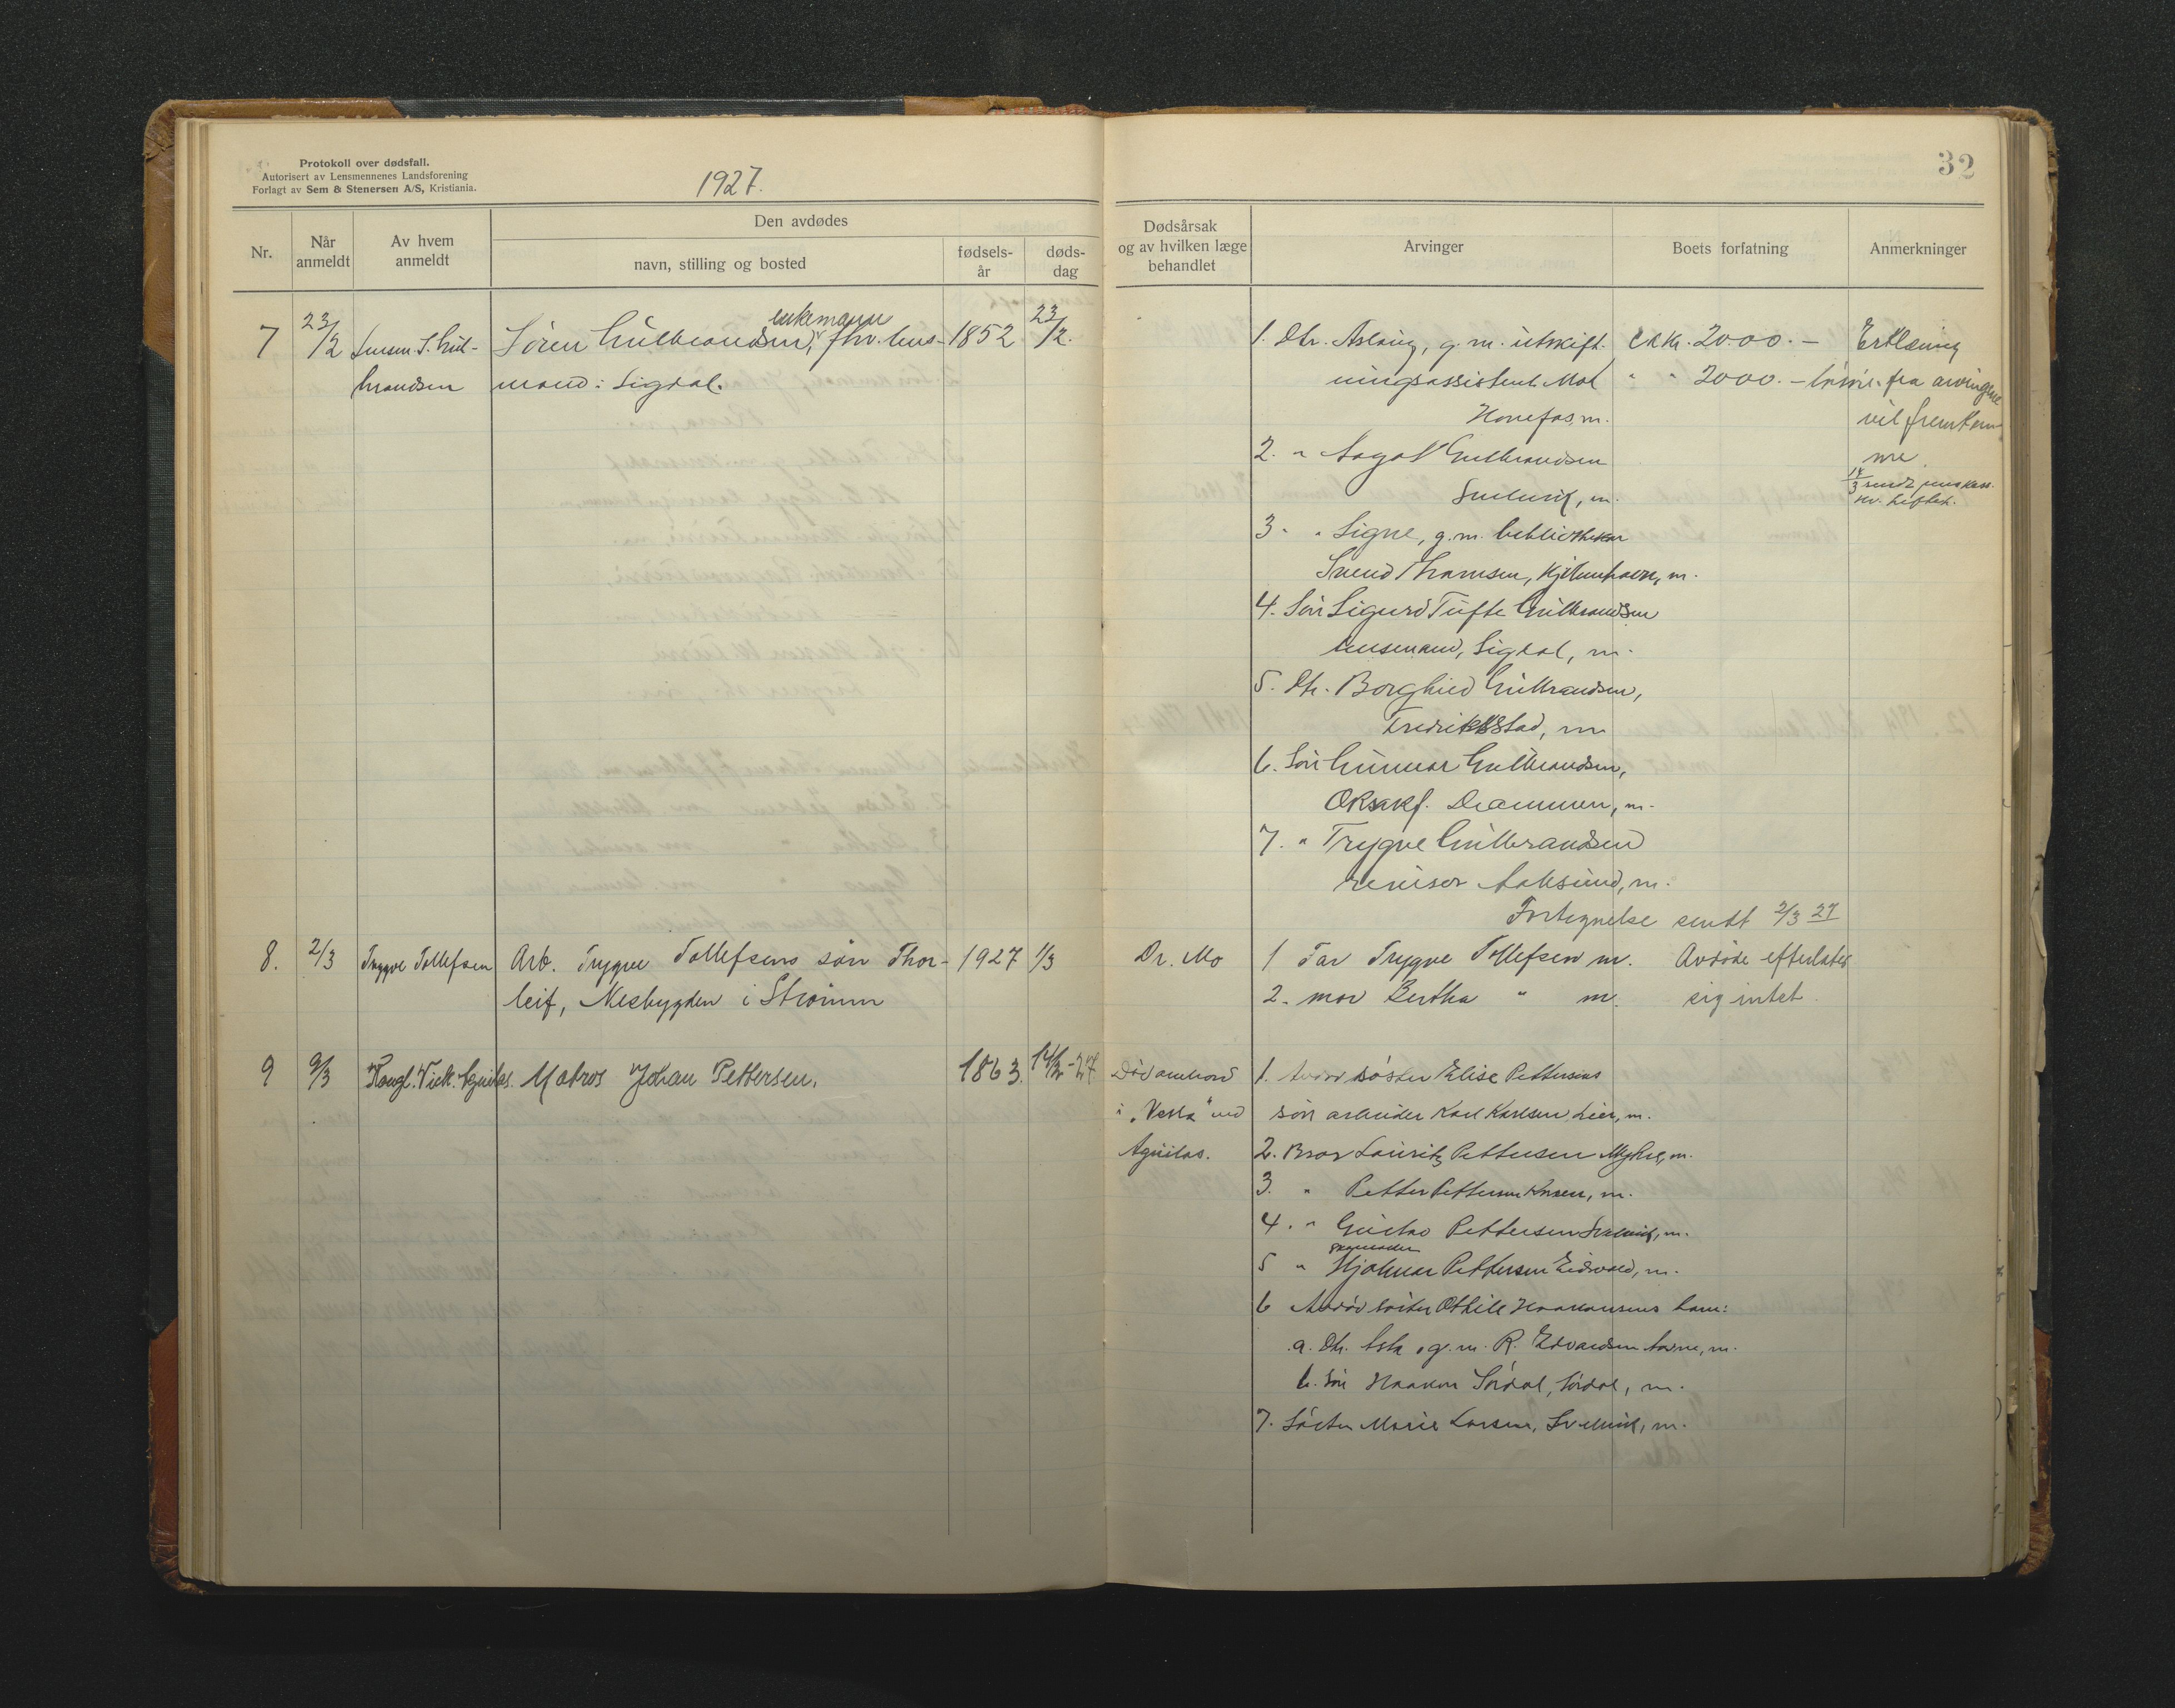 Protokoll over dødsfall.
Autorisert av Lensmennenes Landsforening
Forlagt av Sem & Stenersen A/S, Kristiania.
1927.
32
Nr.
Når anmeldt
Av hvem anmeldt
Den avdødes
navn, stilling og bosted
fødsels-år
døds-dag
Dødsårsak og av hvilken læge behandlet
Arvinger
Boets forfatning
Anmerkninger
7 23/2 Lensm. S. Gul-
brandsen
enkemann
Sören Gulbrandsen, fhv. lens- 1852 23/2.
mand i Sigdal.
1. Dtr. Aslaug, g. m. utskift-
ningsassistent Moe
Hönefos, m.
2. " Aagot Gulbrandsen
Svelvik, m.
3. " Signe, g. m. bibliothekar
Svend Thomsen, Kjöbenhavn, m.
4. Sön Sigurd Tufte Gulbrandsen
lensmand, Sigdal, m.
5. Dtr. Borghild Gulbrandsen,
Fredrikstad, m
6. Sön Gunnar Gulbrandsen,
O.R.sakf. Drammen, m.
7. " Trygve Gulbrandsen
revisor Aalesund, m.
Fortegnelse sendt 2/3 27
Ca Kr. 2000.-
" " 2000.-
Erklæring
fra arvingene
vil fremkom-
me.
8. 2/3 Trygve Tollefsen Arb. Trygve Tollefsens sön Thor- 1927 1/3
leif, Nesbygden i Strömm
Dr. Mo
1 Far Trygve Tollefsen m.
2. mor Bertha " m.
Avdöde efterlater
sig intet.
9 9/3 Kongl. Vicek. Aguilas. Matros Johan Pettersen. 1863. 14/2-27
Död ombord
i "Vesla" ved
Aguilas.
1. Avdöd söster Elise Pettersens
sön arbeider Karl Karlsen Lier, m.
2. Bror Lauritz Pettersen Myhre, m.
3. " Petter Pettersen, m.
4. " Gustav Pettersen Svelvik, m.
5 " Hjalmar Pettersen Eidsvold, m.
6 Avdöd söster Othilie Haakonsens barn:
a. Dtr. Asta, g. m. R. Edvardsen, m.
b. Sön Haakon Sördal, Sördal, m.
7. Söster Marie Larsen, Svelvik, m.